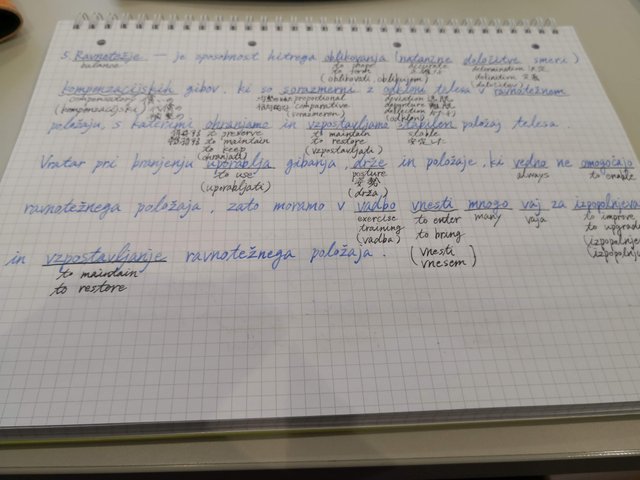 5. Ravnotežje — je sposobnost hitrega oblikovanja (natančne določitve smeri)
balance to shape accurate determination 決定
to form 正確な definition 定義
(oblikovati, oblikujem) (določitev)
kompenzacijskih gibov, ki so sorazmerni z odkloni telesa v ravnotežnem
compensatory 償い の proportional deviation 逸脱
(kompenzacijski) comparative departure
(sorazmeren) deflection
(odklon)
položaju, s katerimi ohranjamo in vzpostavljamo stabilen položaj telesa.
to preserve to maintain stable
to maintain to restore 安定
to keep (vzpostavljati)
(ohranjati)
Vratar pri branjenju uporablja gibanja, drže in položaje, ki vedno ne omogočajo
to use posture always to enable
(uporabljati) 姿勢
(drža)
ravnotežnega položaja, zato moramo v vadbo vnesti mnogo vaj za izpopolnjeva
exercise to enter many vaja to improve
training to bring to upgrade
(vadba) (vnesti
vnesem)
in vzpostavljanje ravnotežnega položaja.
to maintain
to restore